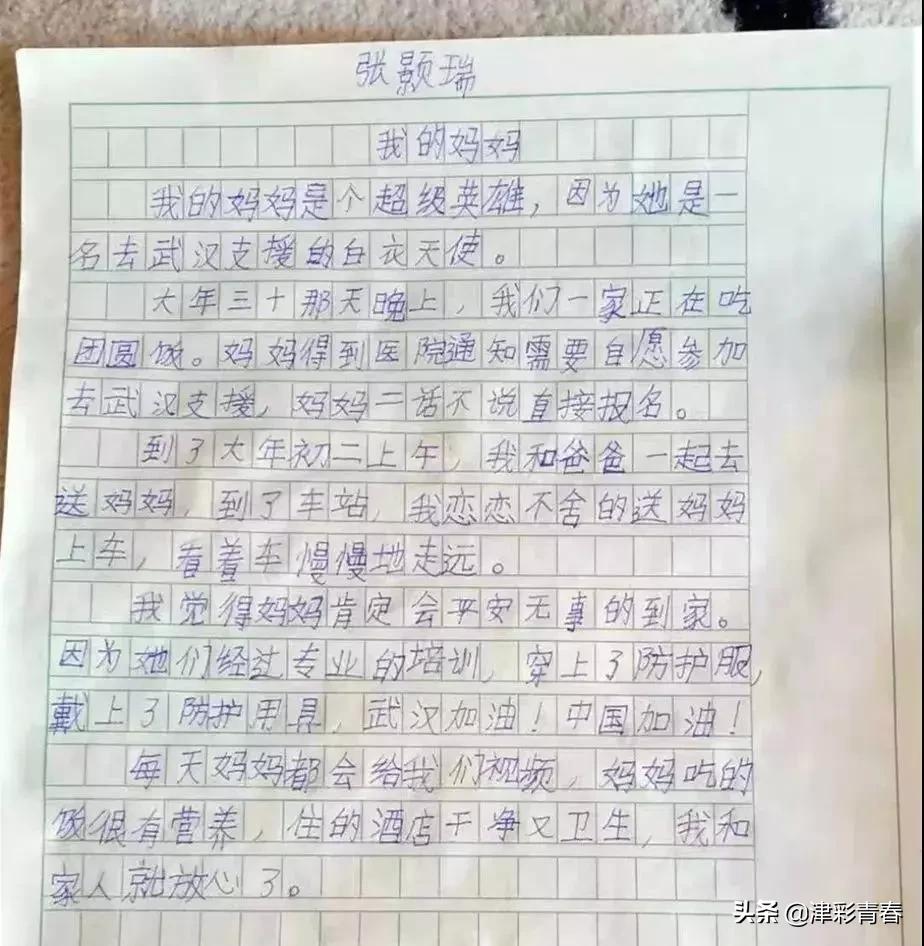 张颢瑞
我的妈妈
我的妈妈是个超级英雄，因为她是一
名去武汉支援的白衣天使。
大年三十那天晚上，我们一家正在吃
团圆饭。妈妈得到医院通知需要自愿参加
去武汉支援，妈妈二话不说直接报名。
到了大年初二上午，我和爸爸一起去
送妈妈，到了车站，我恋恋不舍的送妈妈
上车，看着车慢慢地走远。
我觉得妈妈肯定会平安无事的到家。
因为她们经过专业的培训，穿上了防护服，
戴上了防护用具，武汉加油！中国加油！
每天妈妈都会给我们视频，妈妈吃的
饭很有营养，住的酒店干净又卫生，我和
家人就放心了。
头条 @津彩青春